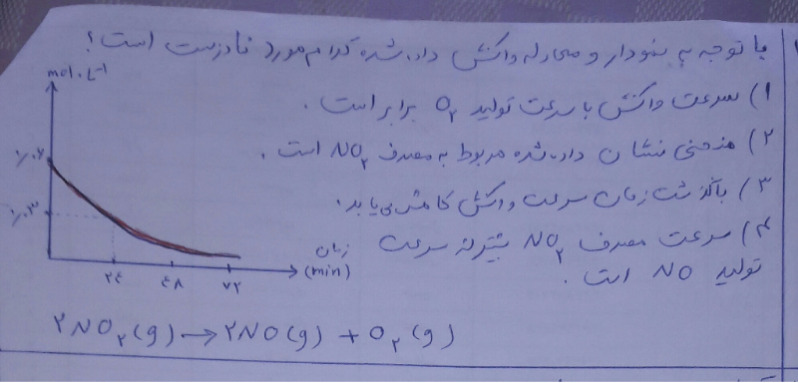 با توجه به نمودار و معادله واکنش داده شده کدام مورد نادرست است؟
۱) سرعت واکنش با سرعت تولید O۲ برابر است.
۲) منحنی نشان داده شده مربوط به مصرف NO۲ است.
۳) باگذشت زمان سرعت واکنش کاهش می یابد.
۴) سرعت مصرف NO۲ بیشتر از سرعت
تولید NO است.
mol.L-۱
۰/۰۶
۰/۰۳
۲۴ ۴۸ ۷۲
زمان
(min)
۲NO۲(g) → ۲NO(g) + O۲(g)